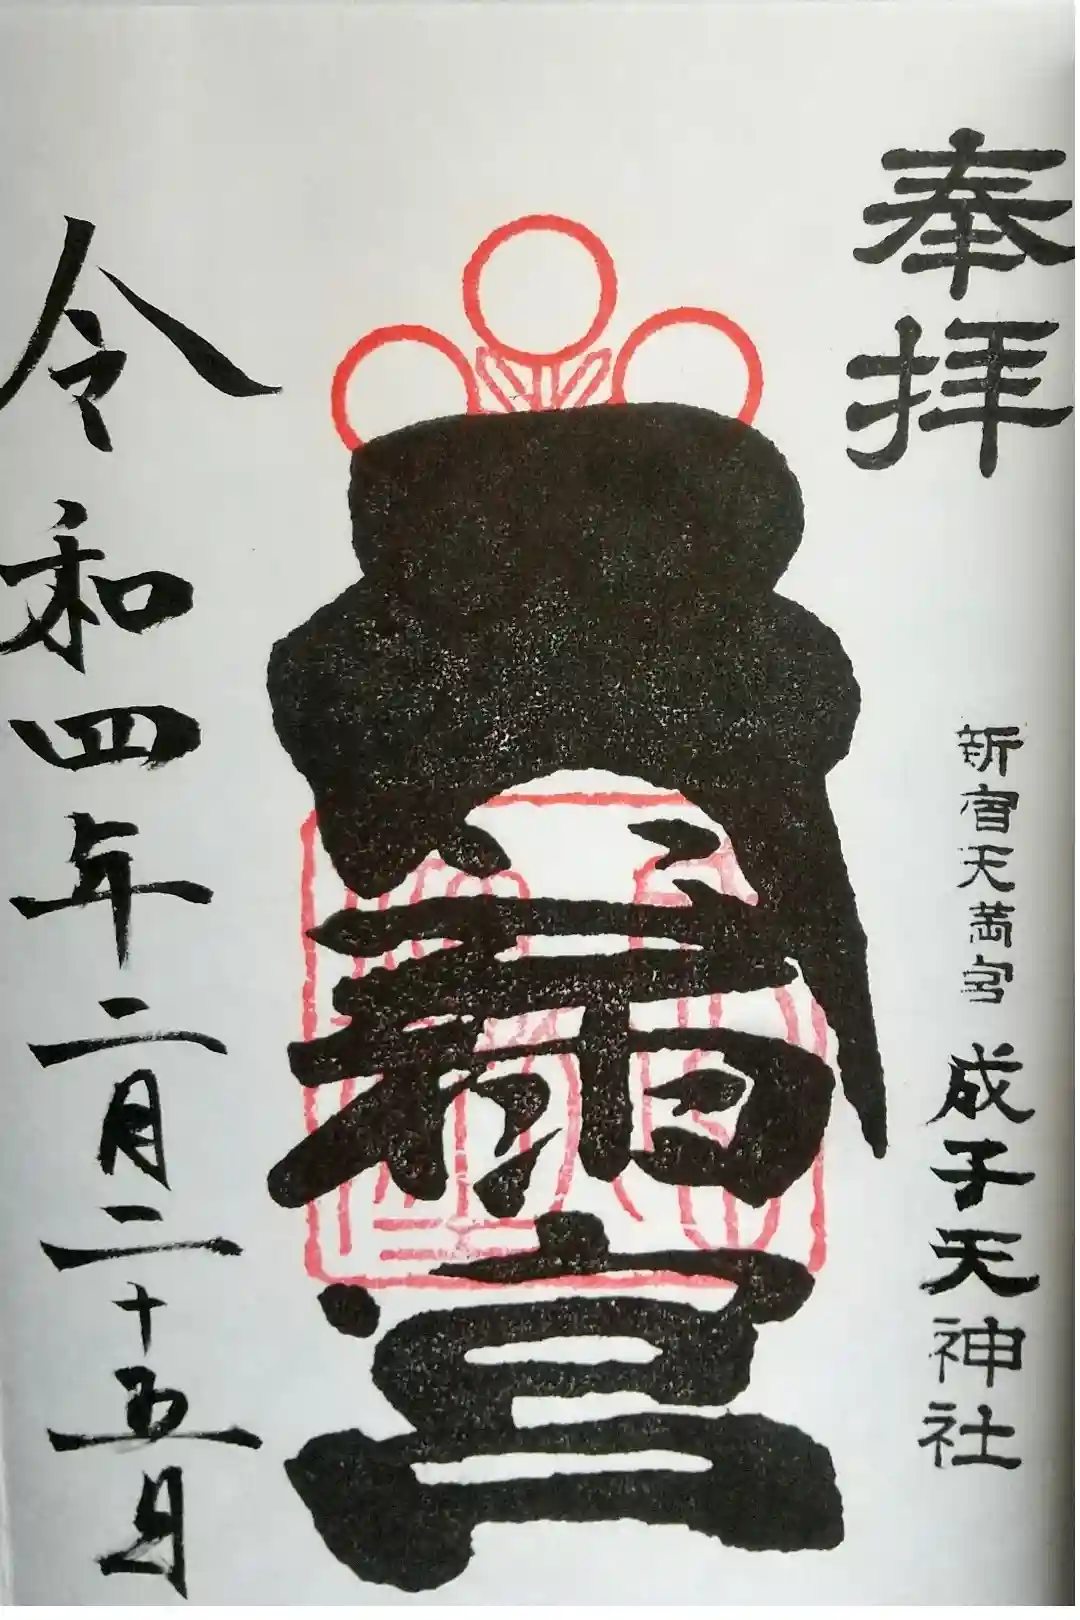 奉拝
新宿天満宮 成子天神社
令和四年二月二十五日